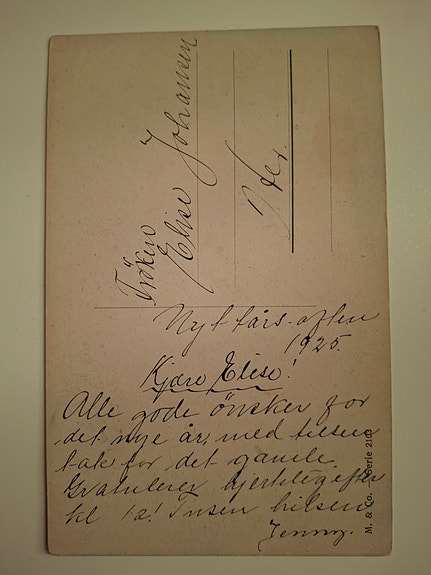 Frøken
Elise Johansen
Her.
Nyttårs-aften
1925.
Kjære Elise!
Alle gode ønsker for
det nye år, med tusen
takk for det gamle.
Gratulerer hjerteligst efter
kl 12! Tusen hilsen
Jenny.
M. & Co. Serie 2103